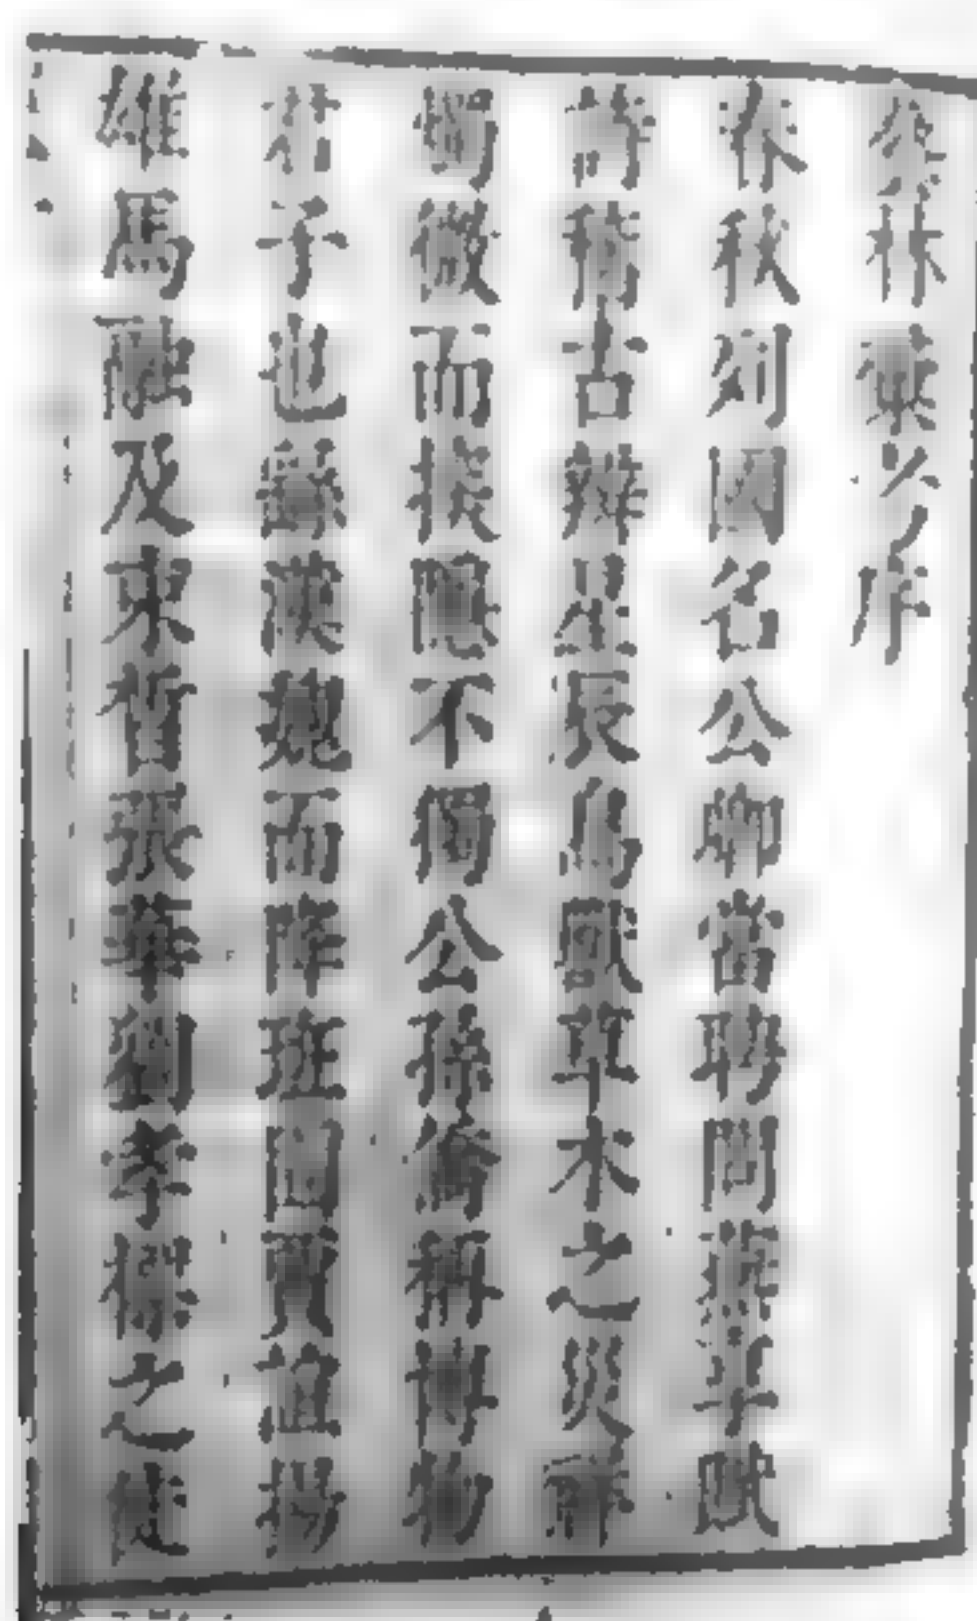 林藁公序
春秋列國名公卿當聘問燕享賦
詩稽古辨星辰鳥獸草木之災祥
燭微而摭隱不獨公孫僑稱博物
君子也繇漢魏而降班固賈誼揚
雄馬融及束晳張華劉孝標之徒